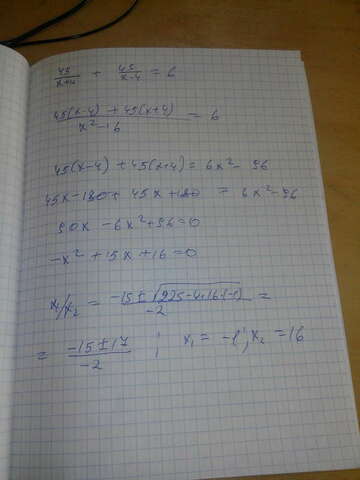 45/(x+4) + 45/(x-4) = 6
(45(x-4) + 45(x+4))/(x²-16) = 6
45(x-4) + 45(x+4) = 6x² - 96
45x - 180 + 45x + 180 = 6x² - 96
90x - 6x² + 96 = 0
-x² + 15x + 16 = 0
x₁/x₂ = (-15 ± √(225 - 4·16·(-1)))/(-2) =
= (-15 ± 17)/(-2) ; x₁ = -1; x₂ = 16